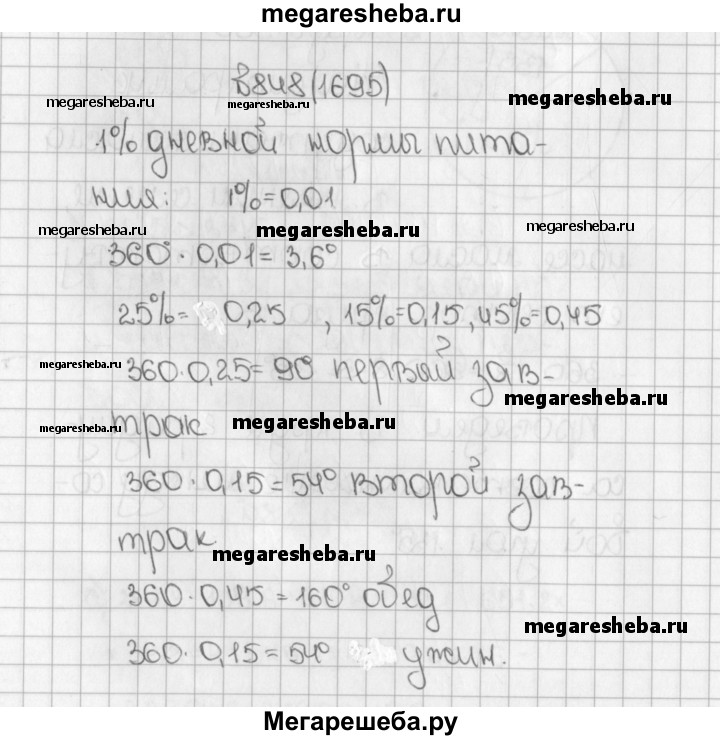 megaresheba.ru
в848(1695)
megaresheba.ru megaresheba.ru megaresheba.ru
1% дневной нормы пита-
ния: 1%=0,01
megaresheba.ru megaresheba.ru megaresheba.ru
360°·0,01=3,6°
25%= 0,25 , 15%=0,15, 45%=0,45
megaresheba.ru
360·0,25=90° первый зав-
megaresheba.ru
трак
megaresheba.ru megaresheba.ru
360·0,15=54° второй зав-
трак
megaresheba.ru
360·0,45=160° обед
megaresheba.ru
360·0,15=54° ужин.
Мегарешеба.ру